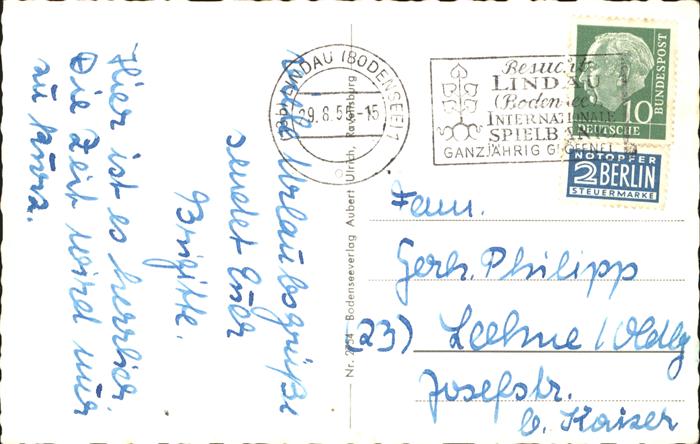 Hier ist es herrlich.
Die Zeit wird nur
zu kurz.
Urlaubsgrüße
sendet Euer
Brigitte.
LINDAU (BODENSEE) 1
29.8.55-15
Besucht
LINDAU
(Bodensee)
INTERNATIONALE
SPIELBANK
GANZJÄHRIG GEÖFFNET
10
DEUTSCHE
BUNDESPOST
NOTOPFER
2 BERLIN
STEUERMARKE
Nr. 2754 Bodenseeverlag Aubert Ulrich, Ravensburg
Fam.
Gerh. Philipp
(23) Lohne / Oldbg
Josefstr.
b. Kaiser